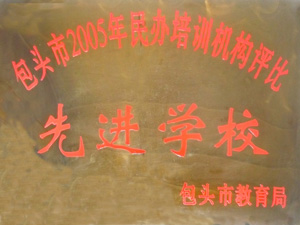 包头市2005年民办培训机构评比
先进学校
包头市教育局